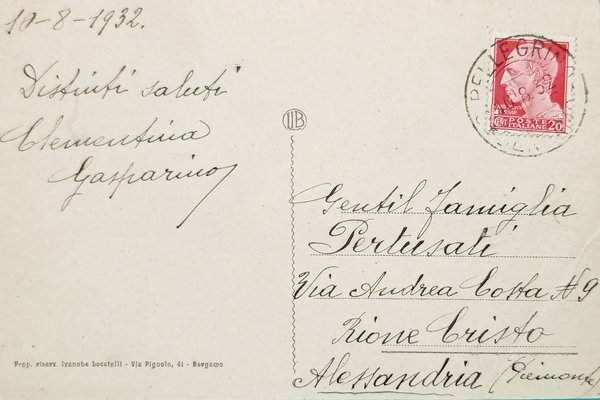 10-8-1932.
Distinti saluti
Clementina
Gasparino
ILB
PELLEGRINO
POSTE
ITALIANE 20
Gentil famiglia
Pertusati
Via Andrea Costa N 9
Rione Cristo
Alessandria (Piemonte)
Prop. riserv. Ivanhoe Locatelli - Via Pignolo, 41 - Bergamo